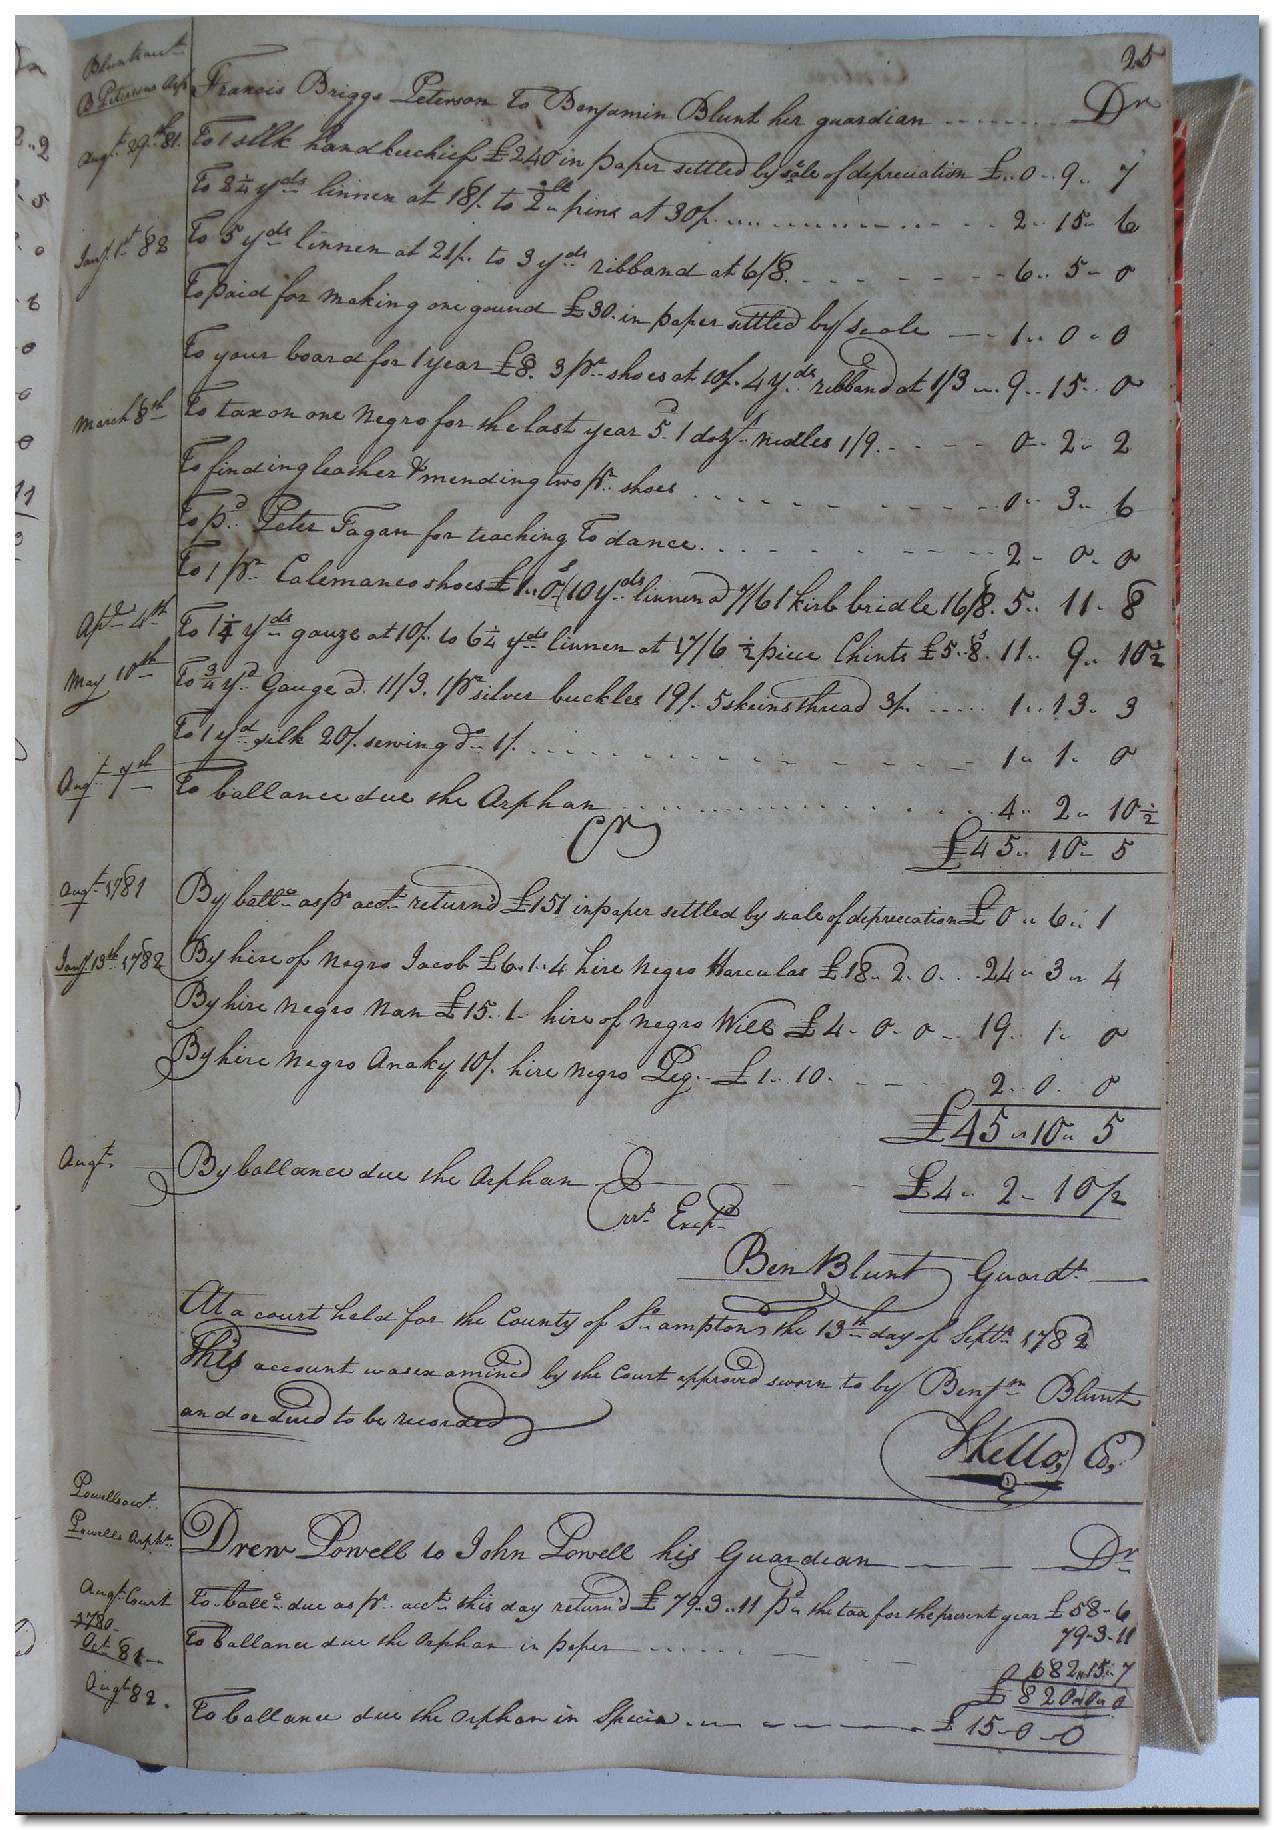 25
Blunts acct.
B Petersons Orp.
Francis Briggs Peterson to Benjamin Blunt her guardian Dr
Augt. 29th 81. To 1 silk handkerchief £240 in paper settled by scale of depreciation £ 0 .. 9 .. 7
To 2¼ yds linnen at 18/. to ½ pins at 30/. 2 .. 15 .. 6
Jany. 1st 82 To 5 yds linnen at 21/. to 3 yds ribband at 6/8. 6 .. 5 .. 0
To paid for making one gound £30. in paper settled by scale 1 .. 0 .. 0
To your board for 1 year £8. 3 pr. shoes at 10/. 4 yds. ribband at 1/3 9 .. 15 .. 0
March 8th To tax on one Negro for the last year 5d. 1 doz. nedles 1/9. 0 .. 2 .. 2
To finding leather & mending two pr. shoes 0 .. 3 .. 6
To pd. Peter Fagan for teaching to dance. 2 .. 0 .. 0
To 1 pr. Calemanco shoes £1..0s 10 yds linnen @ 7/6 1 kirb bridle 16/8. 5 .. 11 .. 8
Apr. 4th To 1¼ yds gauze at 10/. to 6¼ yds linnen at 17/6 ½ piece Chints £5..8s. 11 .. 9 .. 10½
May 10th To ¾ yd. Gauge @. 11/3. 1 pr silver buckles 19/. 5 skeins thread 3/. 1 .. 13 .. 3
To 1 yd silk 20/. sewing do. 1/. 1 .. 1 .. 0
Augt. 7th To ballance due the Orphan 4 .. 2 .. 10½
£45 .. 10 .. 5
Cr
Augt. 1781 By balle. as pr acct. returnd £151 in paper settled by scale of depreciation £0 .. 6 .. 1
Jany. 13th 1782 By hire of negro Jacob £6..1..4 hire Negro Harculas £18..2..0. 24 .. 3 .. 4
By hire Negro Nan £15..1.. hire of negro Will £4..0..0 19 .. 1 .. 0
By hire Negro Anaky 10/. hire Negro Peg. £1..10. 2 .. 0 .. 0
£45 .. 10 .. 5
Augt. By ballance due the Orphan £4 .. 2 .. 10½
Errs. Excpd.
Ben Blunt Guardn.
At a court held for the County of So.ampton the 13th day of Septr. 1782
This account was examined by the Court approved sworn to by Benjn. Blunt
and ordered to be recorded
S Kello, Co,
Powells acct.
Powells Orphn.
Drew Powell to John Powell his Guardian Dr
Augt. Court 1780. To balle. due as pr. acct. this day return'd £79..3..11 pd. the tax for the present year £58-6
79-3-11
Oct. 81 To ballance due the orphan in paper
682..15..7
£820..0..0
Augt 82. To ballance due the orphan in Specia £15-0-0